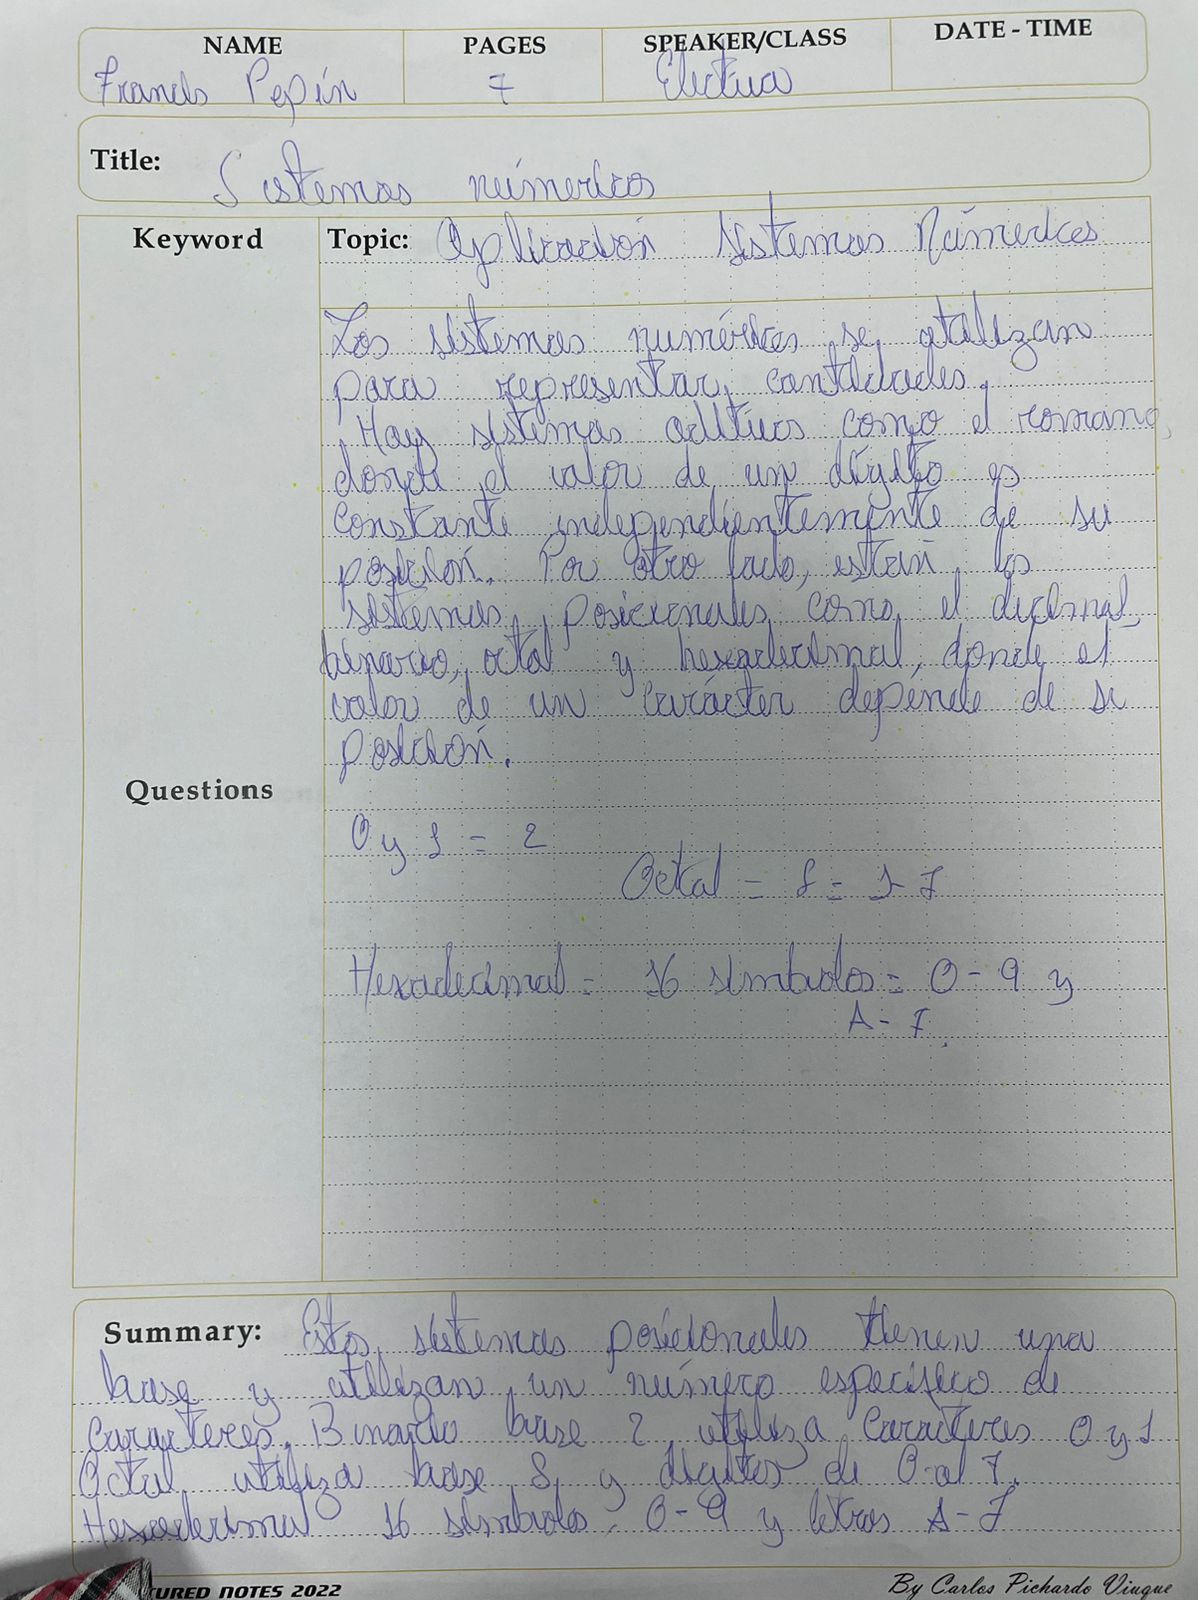 NAME PAGES SPEAKER/CLASS DATE - TIME
Francis Pepín 7 Electiva
Title: Sistemas númericos
Keyword Topic: Aplicación Sistemas Númericos
Los sistemas numéricos se utilizan
para representar cantidades.
Hay sistemas aditivos como el romano,
donde el valor de un dígito es
constante independientemente de su
posición. Por otro lado, están los
sistemas posicionales como el decimal,
binario, octal y hexadecimal, donde el
valor de un carácter depende de su
posición.
Questions
0 y 1 = 2
Octal = 8 = 1-7
Hexadecimal = 16 símbolos = 0-9 y
A-F.
Summary: Estos sistemas posicionales tienen una
base y utilizan un número específico de
caracteres. Binario base 2 utiliza caracteres 0 y 1
Octal utiliza base 8 y dígitos de 0 al 7.
Hexadecimal 16 símbolos = 0-9 y letras A-F
TURED NOTES 2022 By Carlos Pichardo Viuque